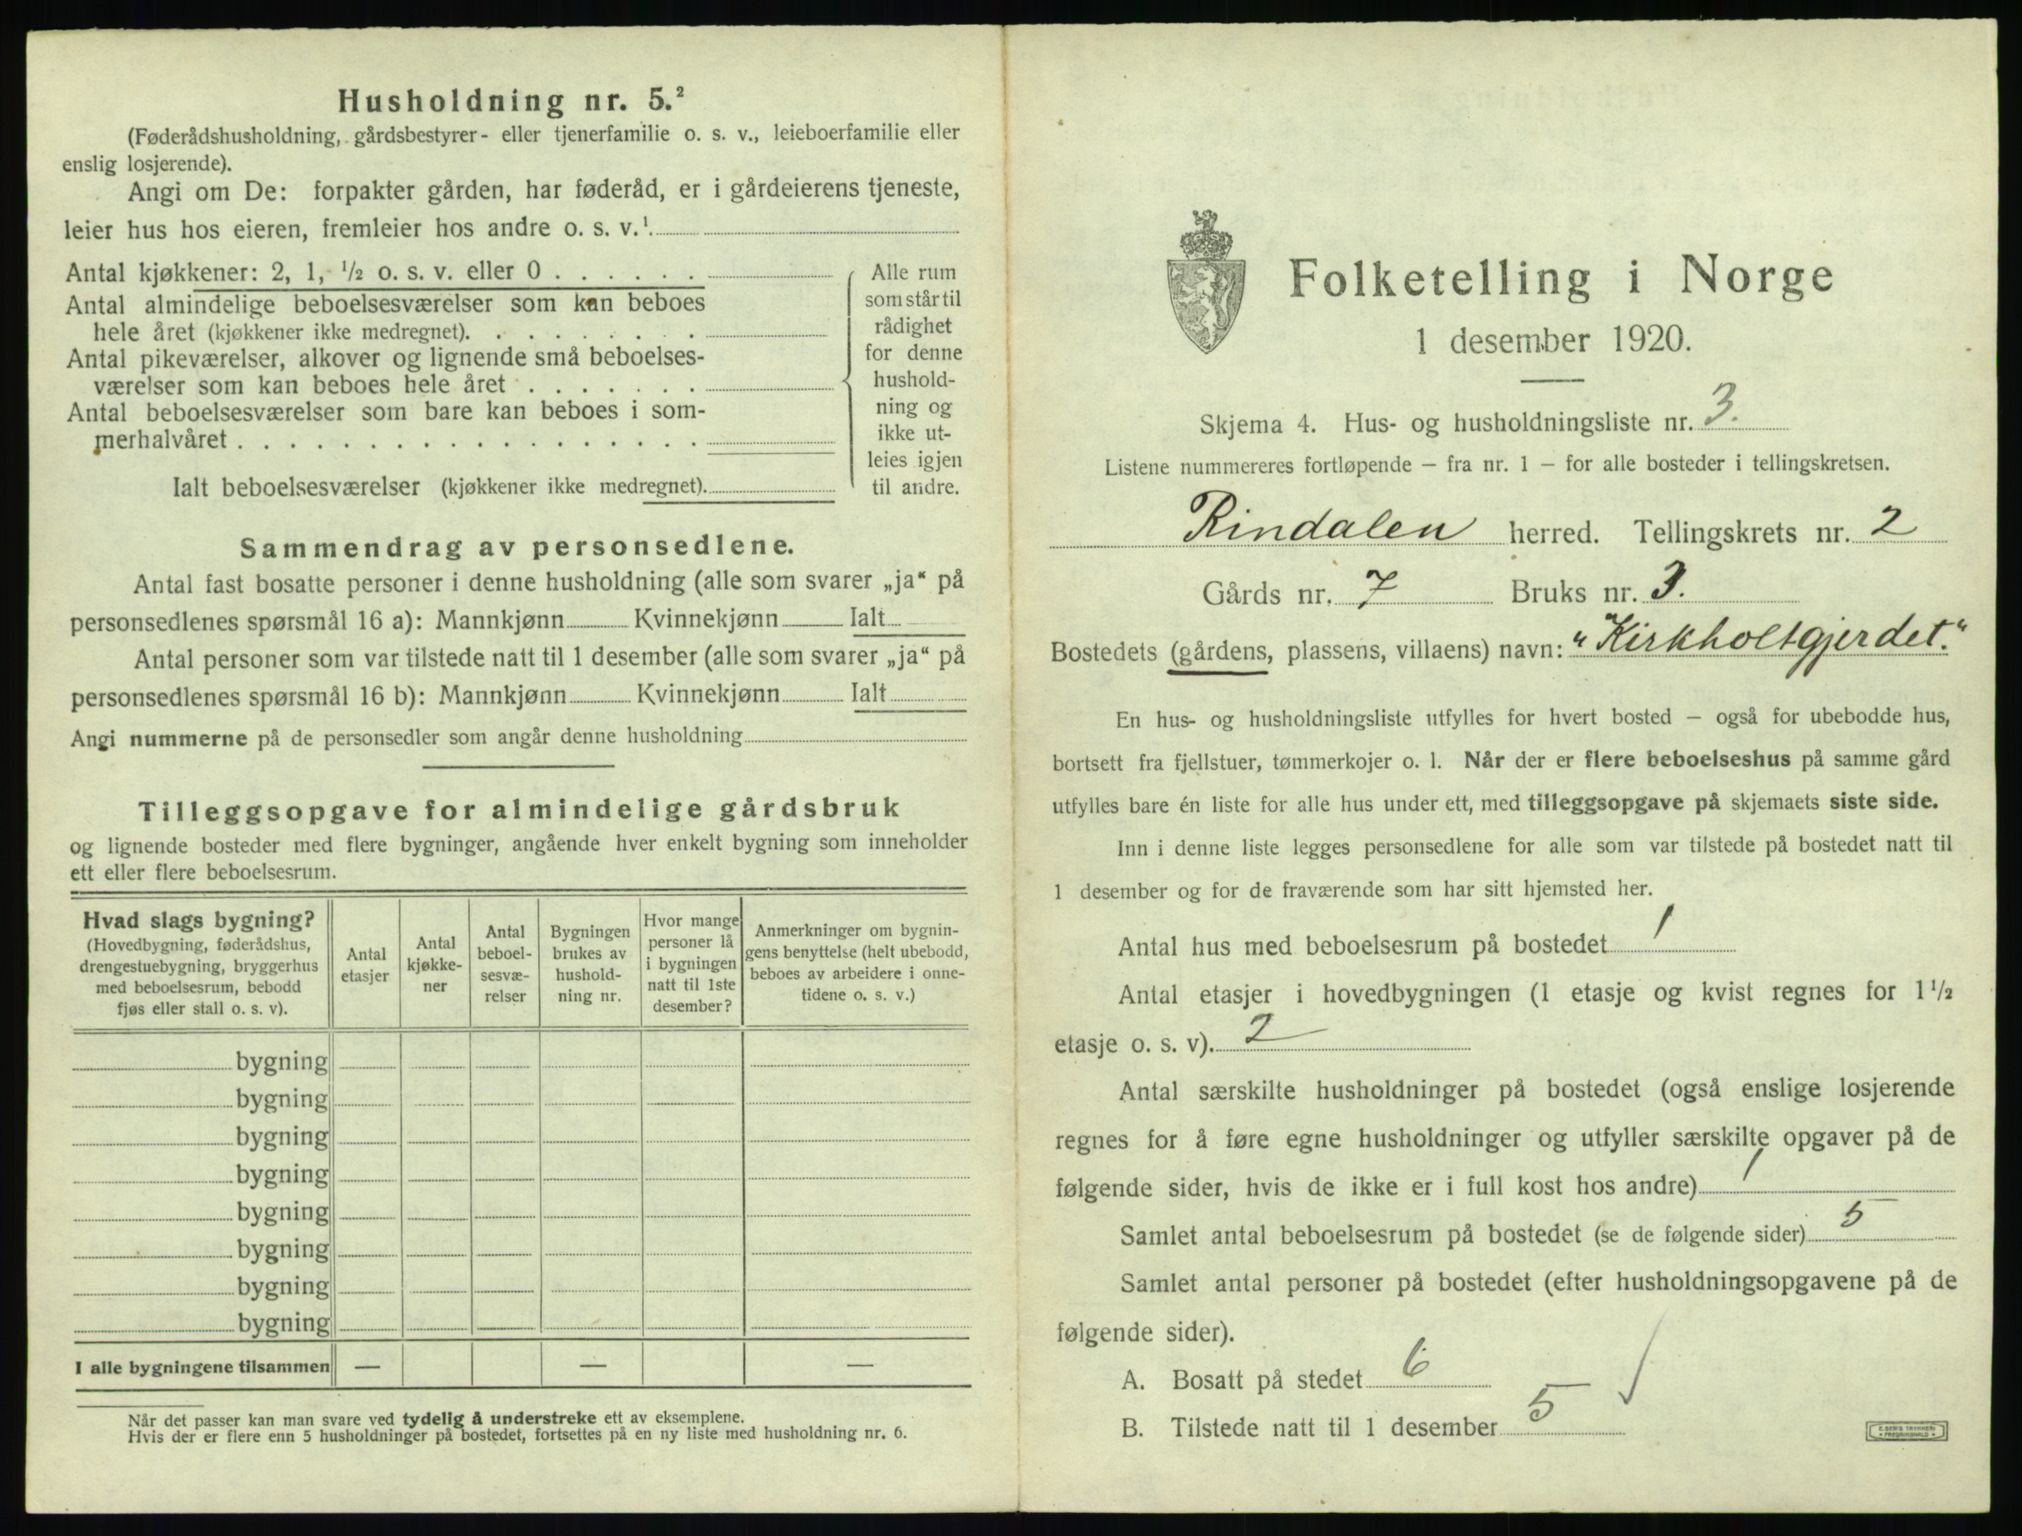 Husholdning nr. 5.²
(Føderådshusholdning, gårdsbestyrer- eller tjenerfamilie o. s. v., leieboerfamilie eller
enslig losjerende).
Angi om De: forpakter gården, har føderåd, er i gårdeierens tjeneste,
leier hus hos eieren, fremleier hos andre o. s. v.¹
Antal kjøkkener: 2, 1, ½ o. s. v. eller 0 . . . . . .
Antal almindelige beboelsesværelser som kan beboes
hele året (kjøkkener ikke medregnet). . . . . . . . .
Antal pikeværelser, alkover og lignende små beboelses-
værelser som kan beboes hele året . . . . . . .
Antal beboelsesværelser som bare kan beboes i som-
merhalvåret . . . . . . . . . . . . . . . . . .
Ialt beboelsesværelser (kjøkkener ikke medregnet).
Alle rum
som står til
rådighet
for denne
hushold-
ning og
ikke ut-
leies igjen
til andre.
Sammendrag av personsedlene.
Antal fast bosatte personer i denne husholdning (alle som svarer „ja“ på
personsedlenes spørsmål 16 a): Mannkjønn Kvinnekjønn Ialt
Antal personer som var tilstede natt til 1 desember (alle som svarer „ja“ på
personsedlenes spørsmål 16 b): Mannkjønn Kvinnekjønn Ialt
Angi nummerne på de personsedler som angår denne husholdning
Tilleggsopgave for almindelige gårdsbruk
og lignende bosteder med flere bygninger, angående hver enkelt bygning som inneholder
ett eller flere beboelsesrum.
Hvad slags bygning?
(Hovedbygning, føderådshus,
drengestuebygning, bryggerhus
med beboelsesrum, bebodd
fjøs eller stall o. s. v).
Antal
etasjer
Antal
kjøkke-
ner
Antal
beboel-
sesvæ-
relser
Bygningen
brukes av
hushold-
ning nr.
Hvor mange
personer lå
i bygningen
natt til 1ste
desember?
Anmerkninger om bygnin-
gens benyttelse (helt ubebodd,
beboes av arbeidere i onne-
tidene o. s. v.)
bygning
bygning
bygning
bygning
bygning
bygning
bygning
bygning
I alle bygningene tilsammen — — —
Når det passer kan man svare ved tydelig å understreke ett av eksemplene.
Hvis der er flere enn 5 husholdninger på bostedet, fortsettes på en ny liste med husholdning nr. 6.
Folketelling i Norge
1 desember 1920.
Skjema 4. Hus- og husholdningsliste nr. 3.
Listene nummereres fortløpende – fra nr. 1 – for alle bosteder i tellingskretsen.
Rindalen herred. Tellingskrets nr. 2
Gårds nr. 7 Bruks nr. 3.
Bostedets (gårdens, plassens, villaens) navn: "Kirkholtgjerdet."
En hus- og husholdningsliste utfylles for hvert bosted – også for ubebodde hus,
bortsett fra fjellstuer, tømmerkojer o. l. Når der er flere beboelseshus på samme gård
utfylles bare én liste for alle hus under ett, med tilleggsopgave på skjemaets siste side.
Inn i denne liste legges personsedlene for alle som var tilstede på bostedet natt til
1 desember og for de fraværende som har sitt hjemsted her.
Antal hus med beboelsesrum på bostedet 1
Antal etasjer i hovedbygningen (1 etasje og kvist regnes for 1½
etasje o. s. v). 2
Antal særskilte husholdninger på bostedet (også enslige losjerende
regnes for å føre egne husholdninger og utfyller særskilte opgaver på de
følgende sider, hvis de ikke er i full kost hos andre) 1
Samlet antal beboelsesrum på bostedet (se de følgende sider) 5
Samlet antal personer på bostedet (efter husholdningsopgavene på de
følgende sider).
A. Bosatt på stedet 6
B. Tilstede natt til 1 desember 5 ✓